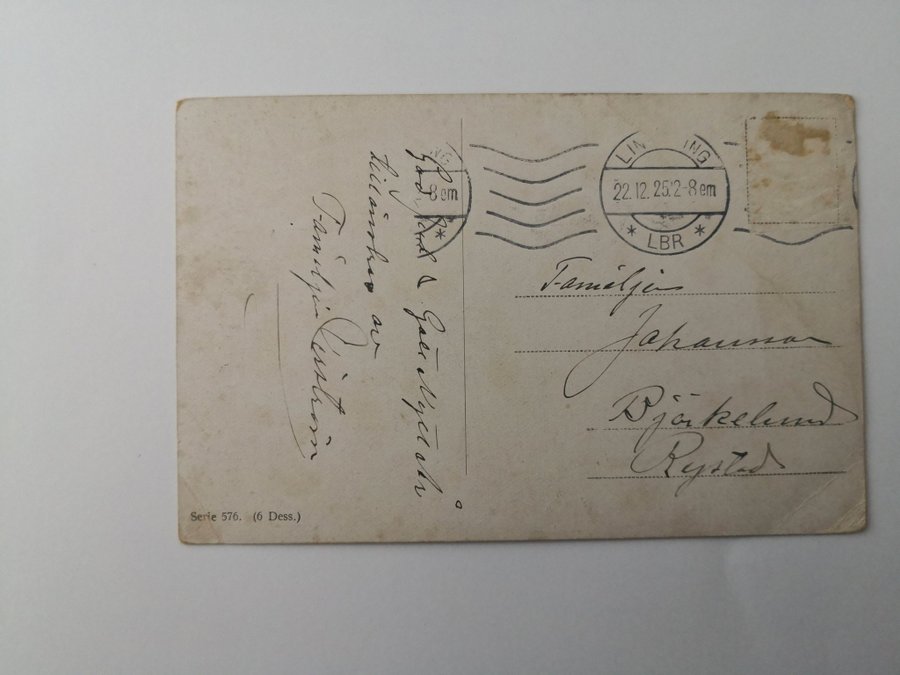 God Jul & Gott Nytt År
tillönskas av
Familjen
LIN ING
22.12.25.12-8 em
* LBR *
NG
-8 em
*
Familjen
Johansson
Björkelund
Rystad
Serie 576. (6 Dess.)